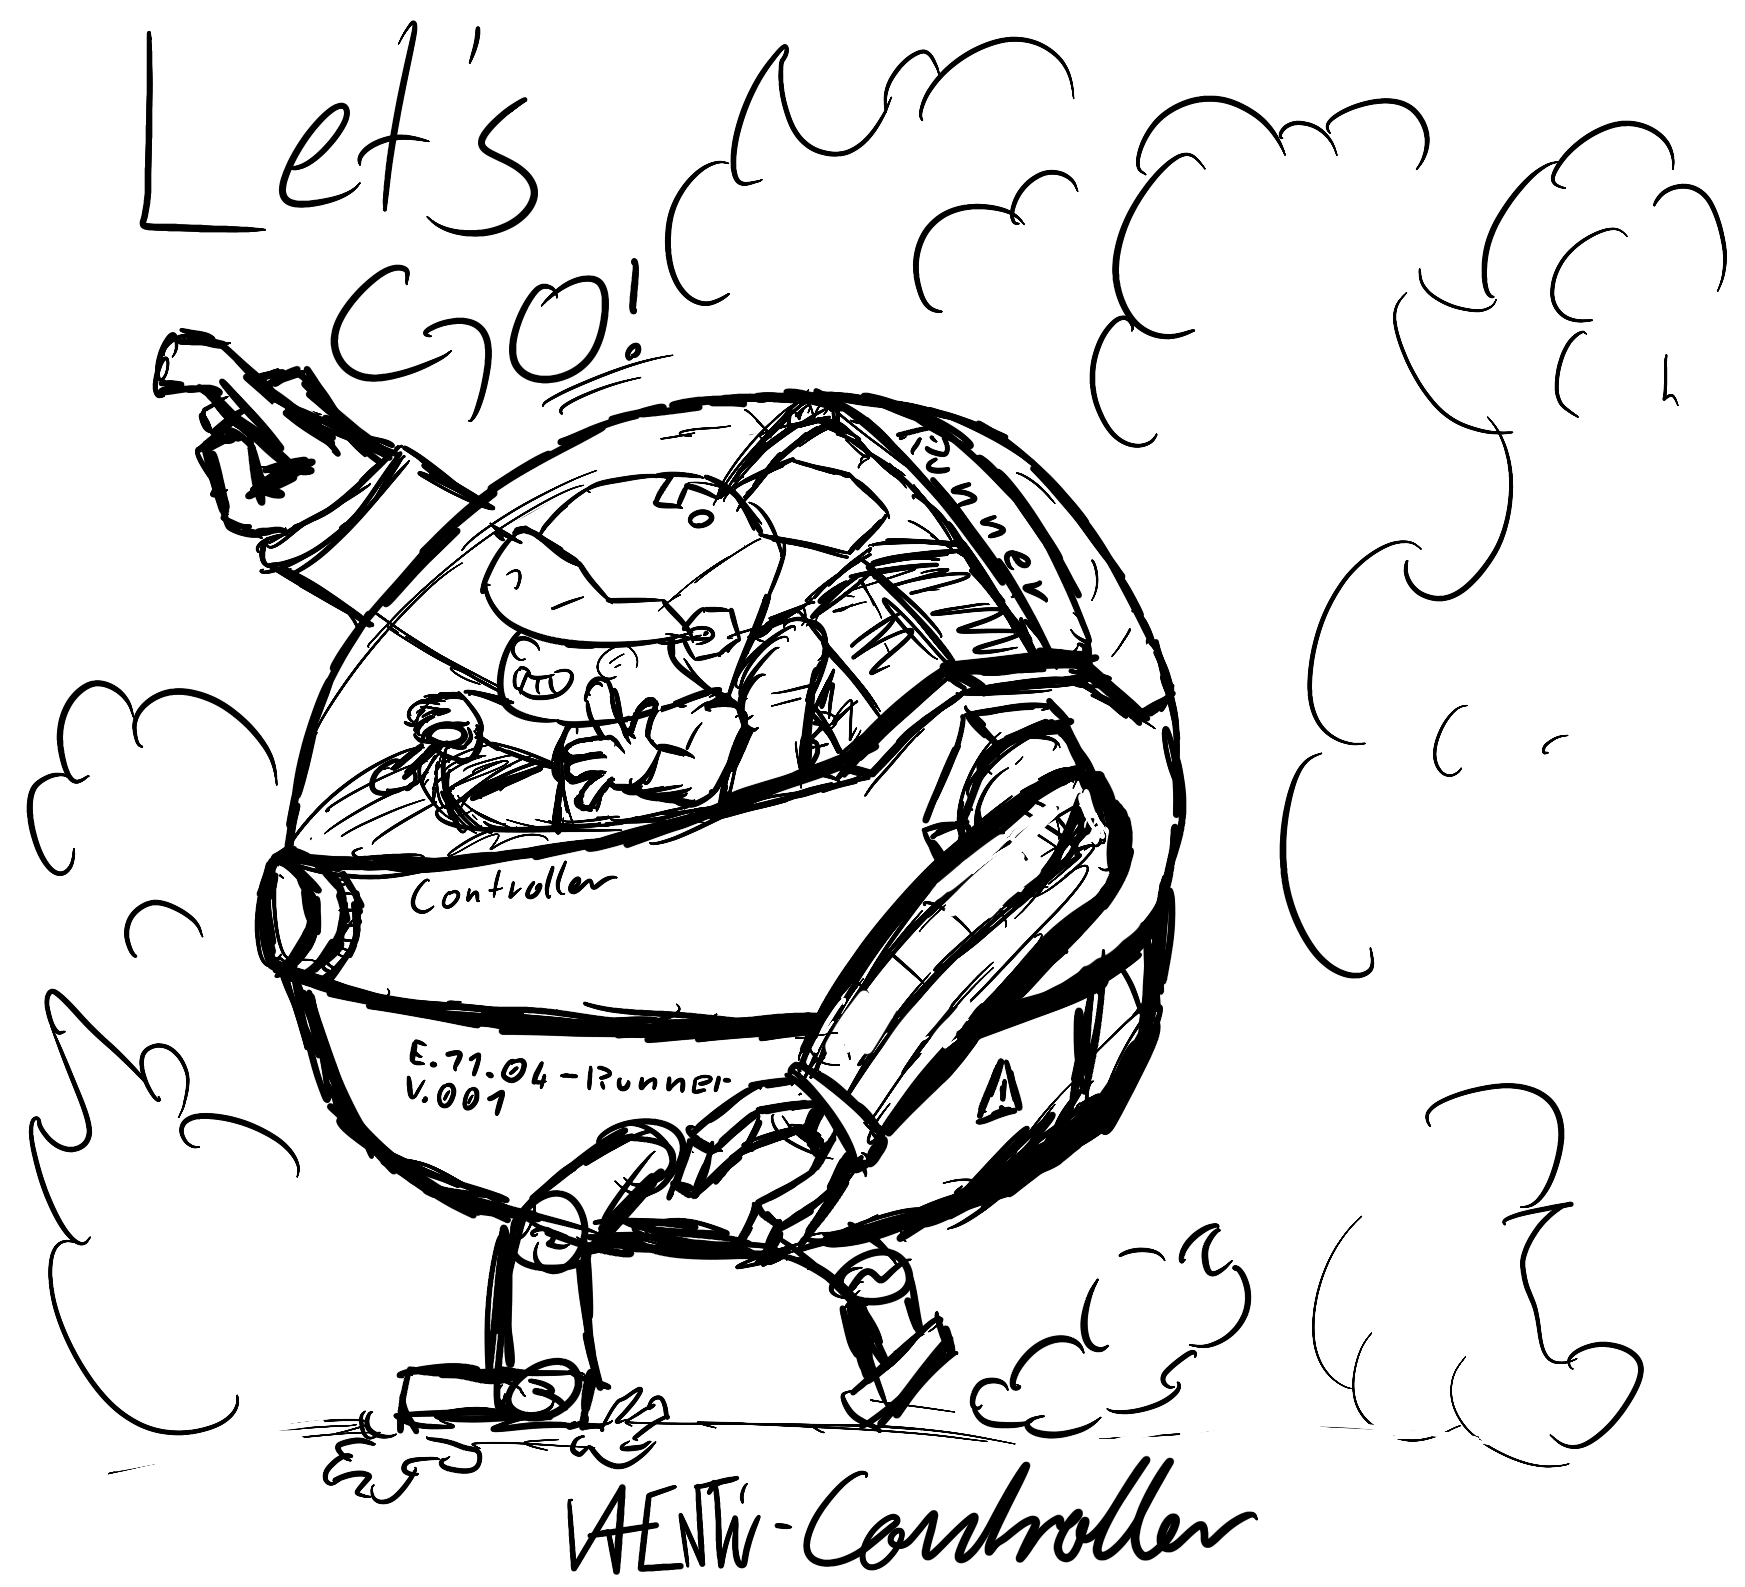 Let's
GO!
Runner
Controller
E.11.04-Runner
V.001
-Controller